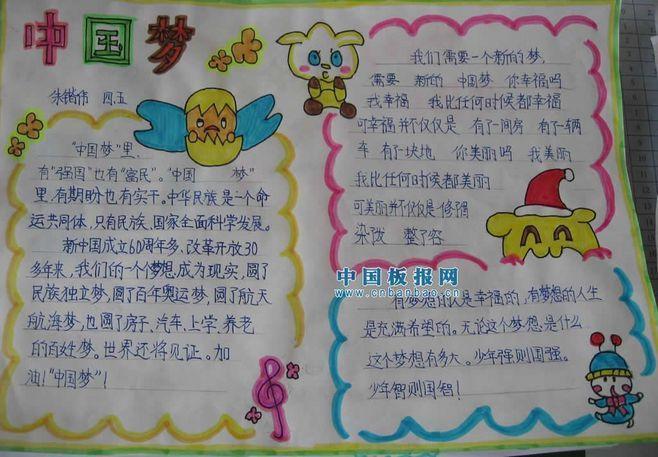 中国梦
朱锴伟 四、五
“中国梦”里,
有“强国”也有“富民”。“中国 梦”
里,有期盼也有实干。中华民族是一个命
运共同体,只有民族、国家全面科学发展。
新中国成立60周年多、改革开放30
多年来,我们的一个个梦想成为现实,圆了
民族独立梦,圆了百年奥运梦,圆了航天
航海梦,也圆了房子、汽车、上学、养老
的百姓梦。世界还将见证。加
油!“中国梦”!
我们需要一个新的梦,
需要 新的 中国梦 你幸福吗
我幸福 我比任何时候都幸福
可幸福并不仅仅是 有了一间房 有了一辆
车 有了一块地 你美丽吗 我美丽
我比任何时候都美丽
可美丽并不仅仅是修了眉
染了发 整了容
中国板报网
www.cnbanbao.cn
有梦想的人是幸福的,有梦想的人生
是充满希望的。无论这个梦想是什么
这个梦想有多大。少年强则国强。
少年智则国智!